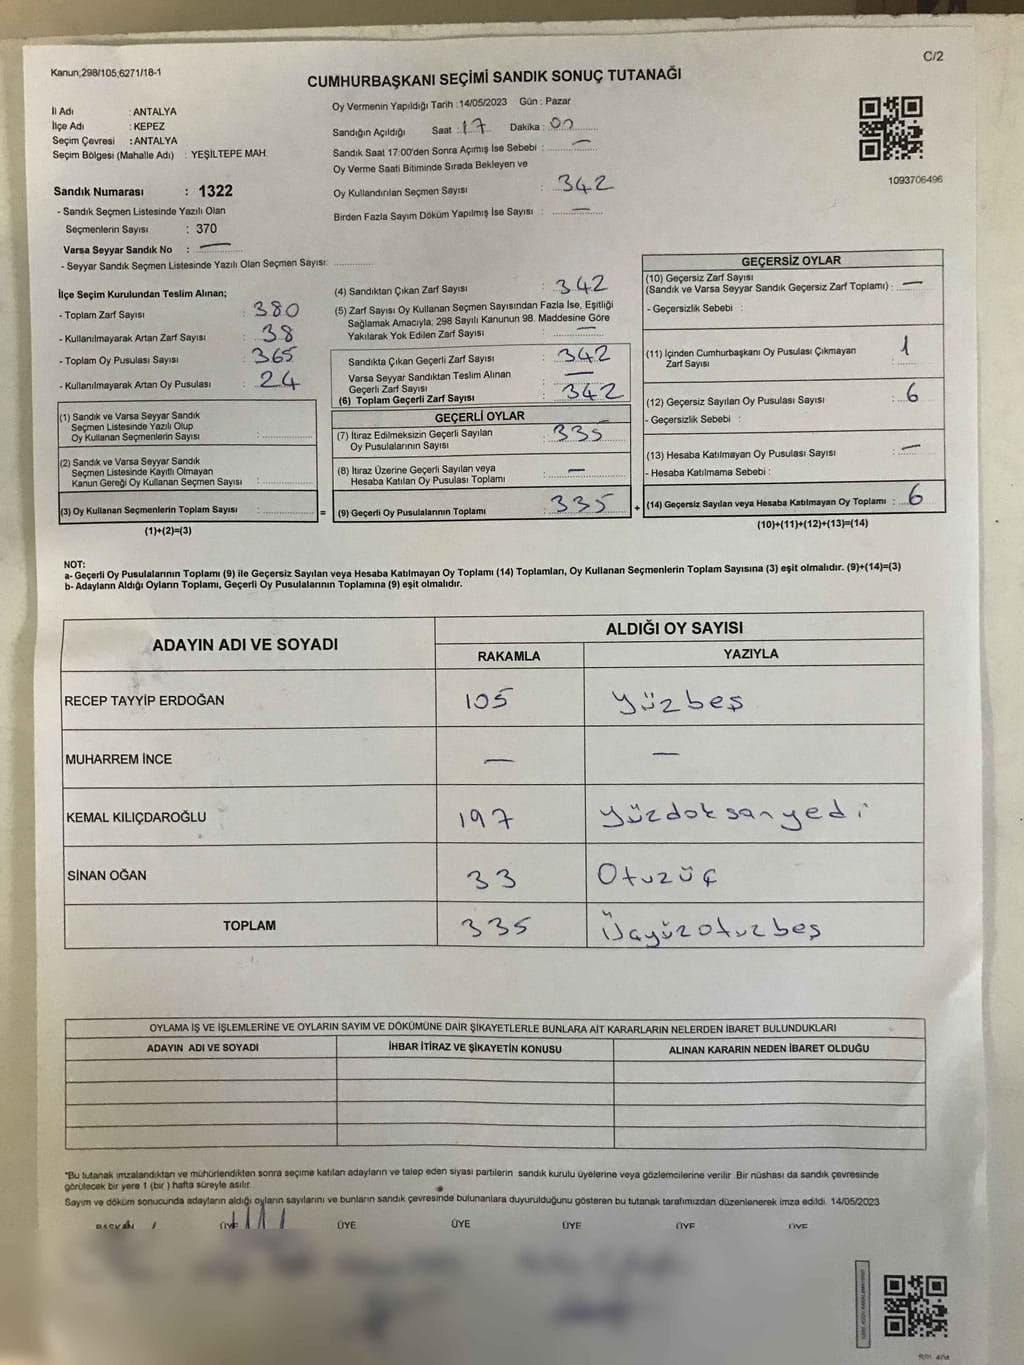 Kanun;298/105;6271/18-1
C/2
CUMHURBAŞKANI SEÇİMİ SANDIK SONUÇ TUTANAĞI
İl Adı : ANTALYA
İlçe Adı : KEPEZ
Seçim Çevresi : ANTALYA
Seçim Bölgesi (Mahalle Adı) : YEŞİLTEPE MAH.
Oy Vermenin Yapıldığı Tarih : 14/05/2023 Gün : Pazar
Sandığın Açıldığı Saat : 17 Dakika : 00
Sandık Saat 17:00'den Sonra Açımış İse Sebebi : —
Oy Verme Saati Bitiminde Sırada Bekleyen ve
Oy Kullandırılan Seçmen Sayısı : 342
Birden Fazla Sayım Döküm Yapılmış İse Sayısı : —
1093706496
Sandık Numarası : 1322
- Sandık Seçmen Listesinde Yazılı Olan
Seçmenlerin Sayısı : 370
Varsa Seyyar Sandık No : —
- Seyyar Sandık Seçmen Listesinde Yazılı Olan Seçmen Sayısı:
İlçe Seçim Kurulundan Teslim Alınan;
- Toplam Zarf Sayısı : 380
- Kullanılmayarak Artan Zarf Sayısı : 38
- Toplam Oy Pusulası Sayısı : 365
- Kullanılmayarak Artan Oy Pusulası : 24
(1) Sandık ve Varsa Seyyar Sandık
Seçmen Listesinde Yazılı Olup
Oy Kullanan Seçmenlerin Sayısı :
(2) Sandık ve Varsa Seyyar Sandık
Seçmen Listesinde Kayıtlı Olmayan
Kanun Gereği Oy Kullanan Seçmen Sayısı :
(3) Oy Kullanan Seçmenlerin Toplam Sayısı : =
(1)+(2)=(3)
(4) Sandıktan Çıkan Zarf Sayısı : 342
(5) Zarf Sayısı Oy Kullanan Seçmen Sayısından Fazla İse, Eşitliği
Sağlamak Amacıyla, 298 Sayılı Kanunun 98. Maddesine Göre
Yakılarak Yok Edilen Zarf Sayısı : —
Sandıkta Çıkan Geçerli Zarf Sayısı : 342
Varsa Seyyar Sandıktan Teslim Alınan
Geçerli Zarf Sayısı : —
(6) Toplam Geçerli Zarf Sayısı : 342
GEÇERLİ OYLAR
(7) İtiraz Edilmeksizin Geçerli Sayılan
Oy Pusulalarının Sayısı : 335
(8) İtiraz Üzerine Geçerli Sayılan veya
Hesaba Katılan Oy Pusulası Toplamı : —
(9) Geçerli Oy Pusulalarının Toplamı : 335 +
GEÇERSİZ OYLAR
(10) Geçersiz Zarf Sayısı
(Sandık ve Varsa Seyyar Sandık Geçersiz Zarf Toplamı) : —
- Geçersizlik Sebebi :
(11) İçinden Cumhurbaşkanı Oy Pusulası Çıkmayan
Zarf Sayısı : 1
(12) Geçersiz Sayılan Oy Pusulası Sayısı : 6
- Geçersizlik Sebebi :
(13) Hesaba Katılmayan Oy Pusulası Sayısı : —
- Hesaba Katılmama Sebebi :
(14) Geçersiz Sayılan veya Hesaba Katılmayan Oy Toplamı : 6
(10)+(11)+(12)+(13)=(14)
NOT:
a- Geçerli Oy Pusulalarının Toplamı (9) ile Geçersiz Sayılan veya Hesaba Katılmayan Oy Toplamı (14) Toplamları, Oy Kullanan Seçmenlerin Toplam Sayısına (3) eşit olmalıdır. (9)+(14)=(3)
b- Adayların Aldığı Oyların Toplamı, Geçerli Oy Pusulalarının Toplamına (9) eşit olmalıdır.
ADAYIN ADI VE SOYADI
ALDIĞI OY SAYISI
RAKAMLA YAZIYLA
RECEP TAYYİP ERDOĞAN 105 Yüzbeş
MUHARREM İNCE — —
KEMAL KILIÇDAROĞLU 197 Yüzdoksanyedi
SİNAN OĞAN 33 Otuzüç
TOPLAM 335 Üçyüzotuzbeş
OYLAMA İŞ VE İŞLEMLERİNE VE OYLARIN SAYIM VE DÖKÜMÜNE DAİR ŞİKAYETLERLE BUNLARA AİT KARARLARIN NELERDEN İBARET BULUNDUKLARI
ADAYIN ADI VE SOYADI İHBAR İTİRAZ VE ŞİKAYETİN KONUSU ALINAN KARARIN NEDEN İBARET OLDUĞU
*Bu tutanak imzalandıktan ve mühürlendikten sonra seçime katılan adayların ve talep eden siyasi partilerin sandık kurulu üyelerine veya gözlemcilerine verilir. Bir nüshası da sandık çevresinde
görülecek bir yere 1 (bir ) hafta süreyle asılır.
Sayım ve döküm sonucunda adayların aldığı oyların sayılarını ve bunların sandık çevresinde bulunanlara duyurulduğunu gösteren bu tutanak tarafımızdan düzenlenerek imza edildi. 14/05/2023
BAŞKAN ÜYE ÜYE ÜYE ÜYE ÜYE ÜYE